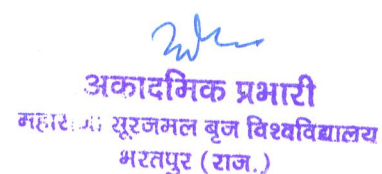 अकादमिक प्रभारी
सूरजमल बृज विश्वविद्यालय
भरतपुर (राज.)